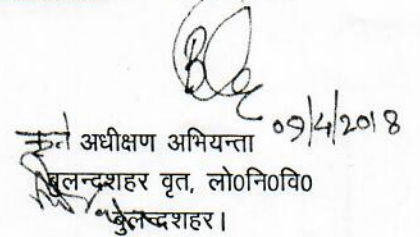 09/4/2018
कृते अधीक्षण अभियन्ता
बुलन्दशहर वृत, लो0नि0वि0
बुलन्दशहर।